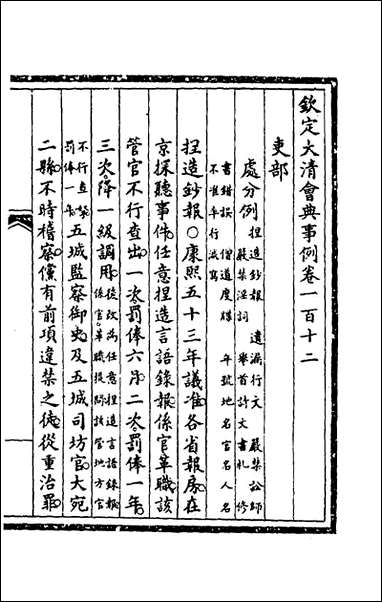 欽定大清會典事例卷一百十二
吏部
處分例
捏造鈔報 遺漏行文 嚴禁訟師
嚴禁淫詞 舉首詩文書札 修
書錯誤 僧道度牒 年號地名官名人名
不准平行減寫
捏造鈔報○康熙五十三年議准各省報房在
京探聽事件任意捏造言語錄報係官革職該
管官不行查出一次罰俸六月二次罰俸一年
三次降一級調用
後改為任意捏造言語錄報
係官革職提問該管地方官
不行查禁
罰俸一年
五城監察御史及五城司坊官大宛
二縣不時稽察儻有前項違禁之徒從重治罪